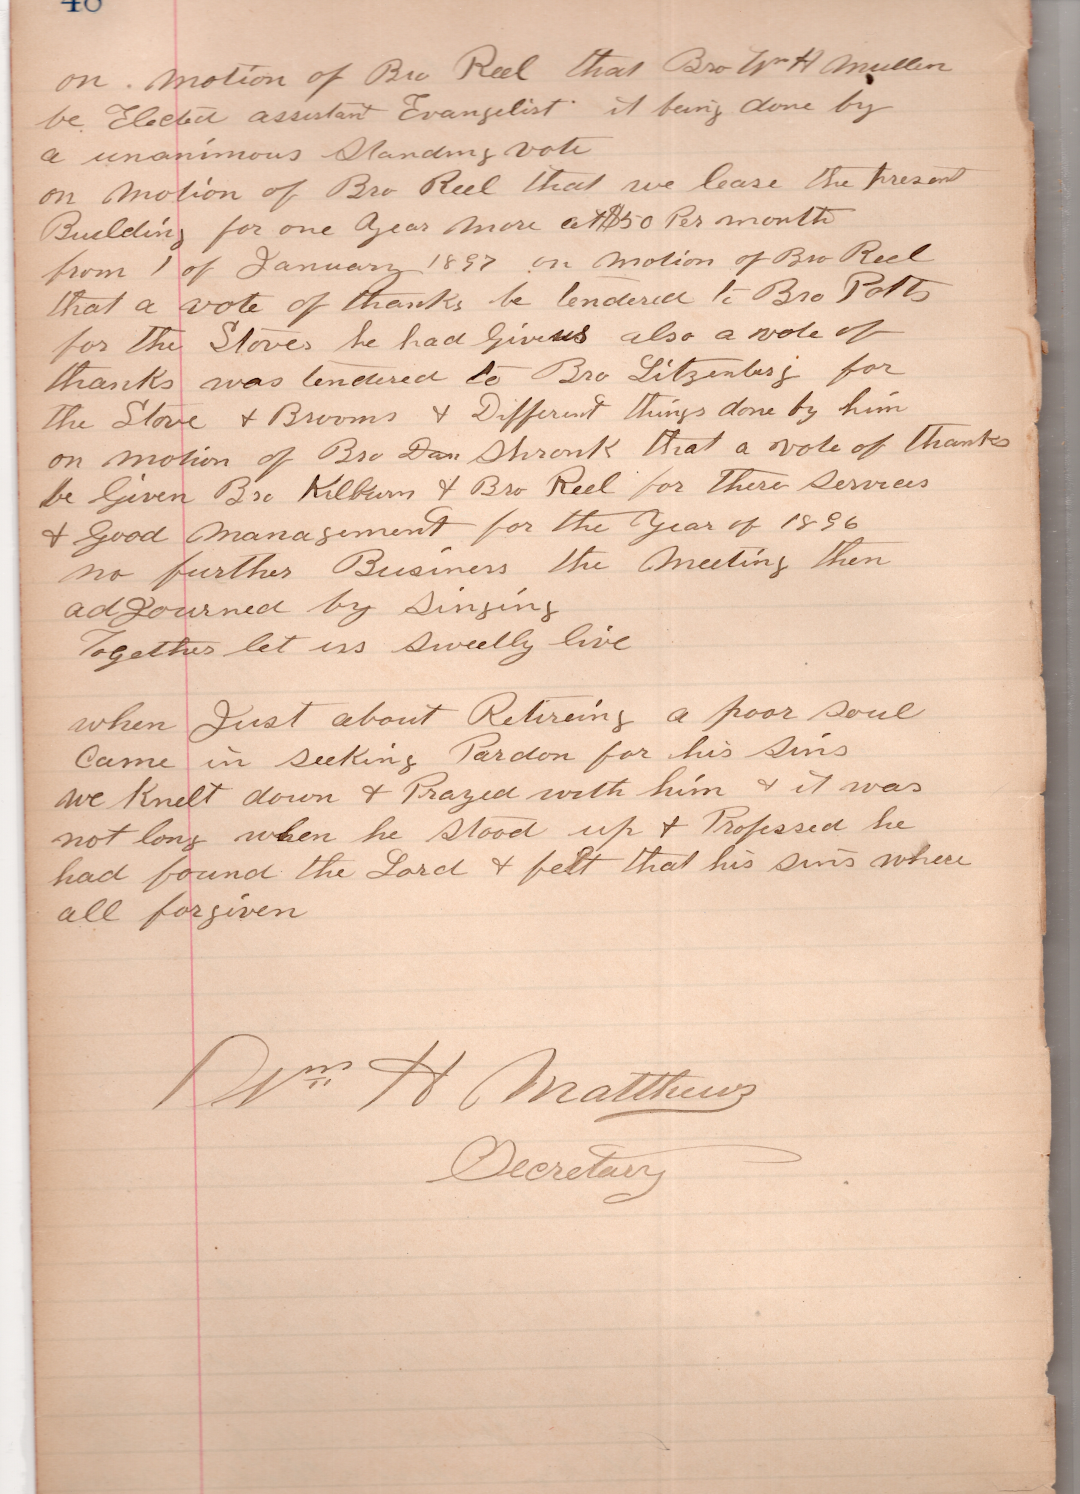 48
on . motion of Bro Reel that Bro Wm H Mullen
be Elected assistant Evangelist it being done by
a unanimous standing vote
on motion of Bro Reel that we lease the present
Building for one Year more at $50 Per month
from 1 of January 1897 on motion of Bro Reel
that a vote of thanks be tendered to Bro Potts
for the Stoves he had Given us also a vote of
thanks was tendered to Bro Litzenberg for
the Stove & Brooms & Different things done by him
on motion of Bro Dan Shronk that a vote of thanks
be Given Bro Kilburn & Bro Reel for there services
& Good management for the Year of 1896
no further Business the Meeting then
adJourned by singing
Together let us sweetly live
when Just about Retireing a poor soul
Came in seeking Pardon for his sins
we Knelt down & Prayed with him & it was
not long when he stood up & Professed he
had found the Lord & felt that his sins where
all forgiven
Wm H Matthews
Secretary